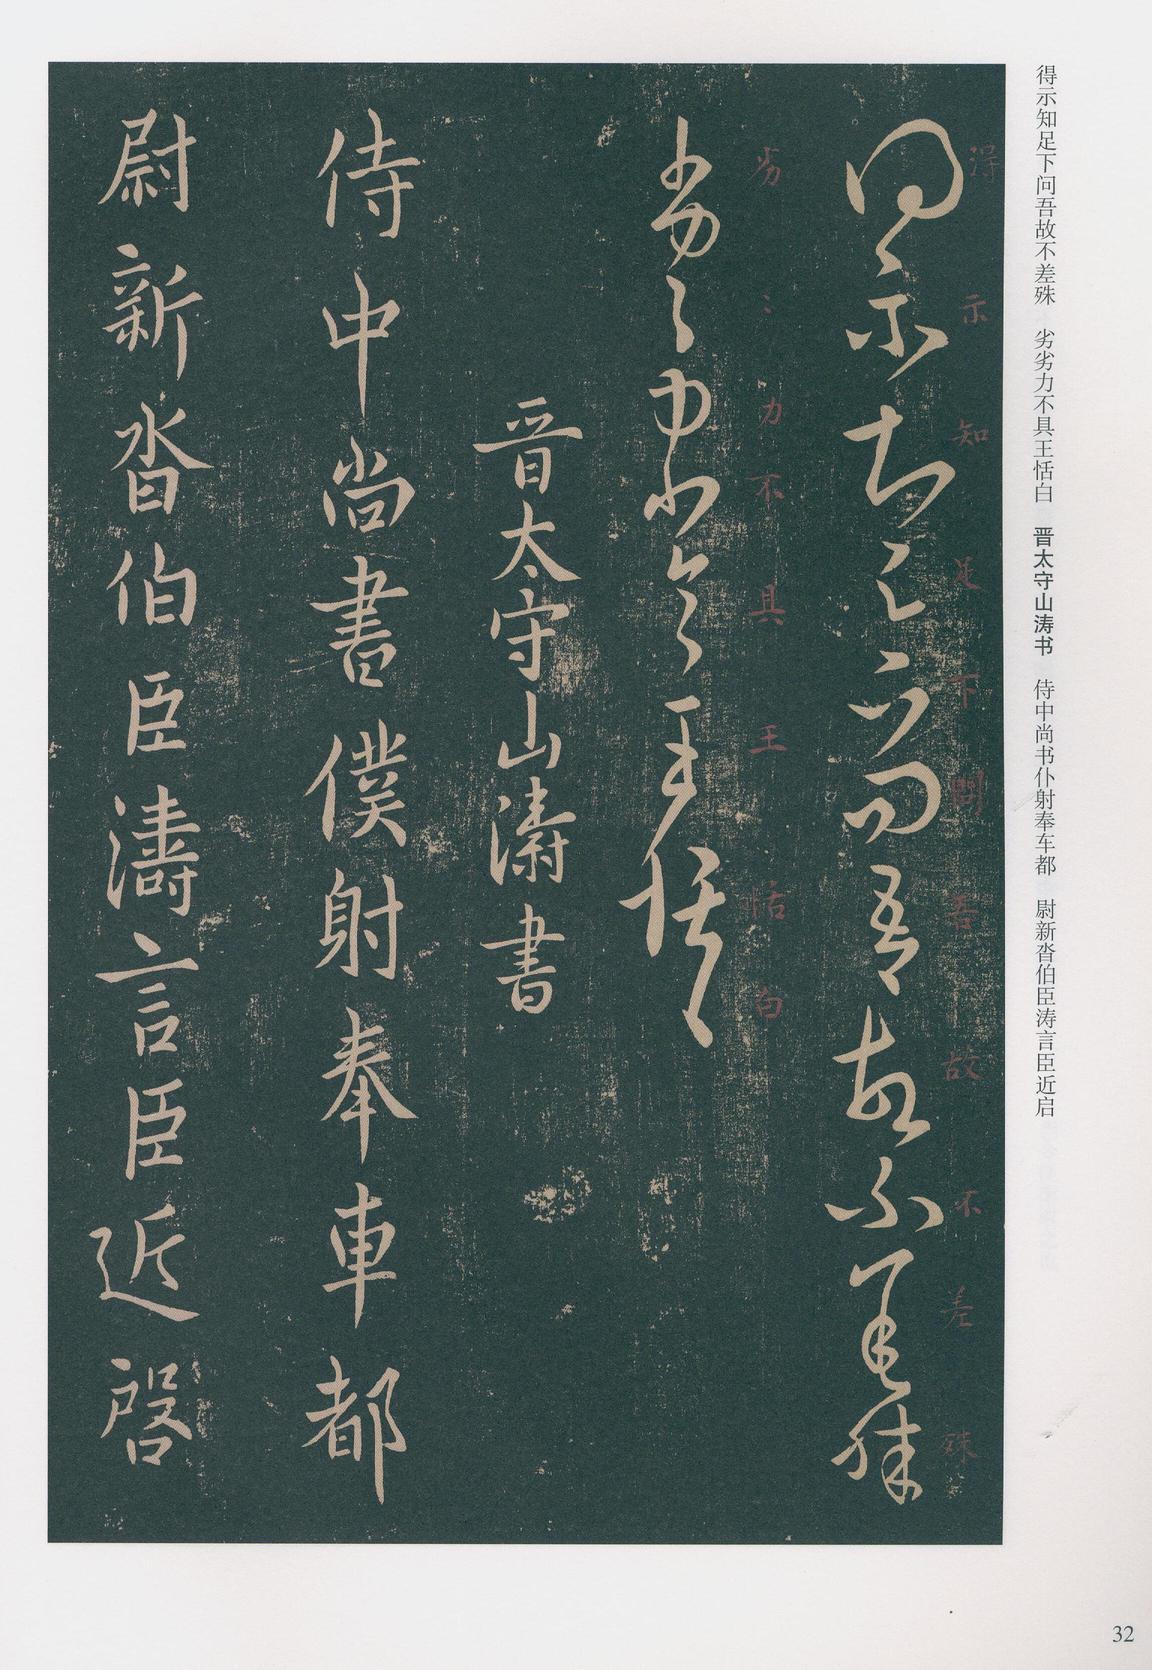 得示知足下问吾故不差殊　劣劣力不具王恬白　晋太守山涛书　侍中尚书仆射奉车都　尉新沓伯臣涛言臣近启
得示知足下問吾故不差殊
得示知足下問吾故不差殊
劣〻力不具王恬白
劣〻力不具王恬白
晉太守山濤書
侍中尚書僕射奉車都
尉新沓伯臣濤言臣近啓
32